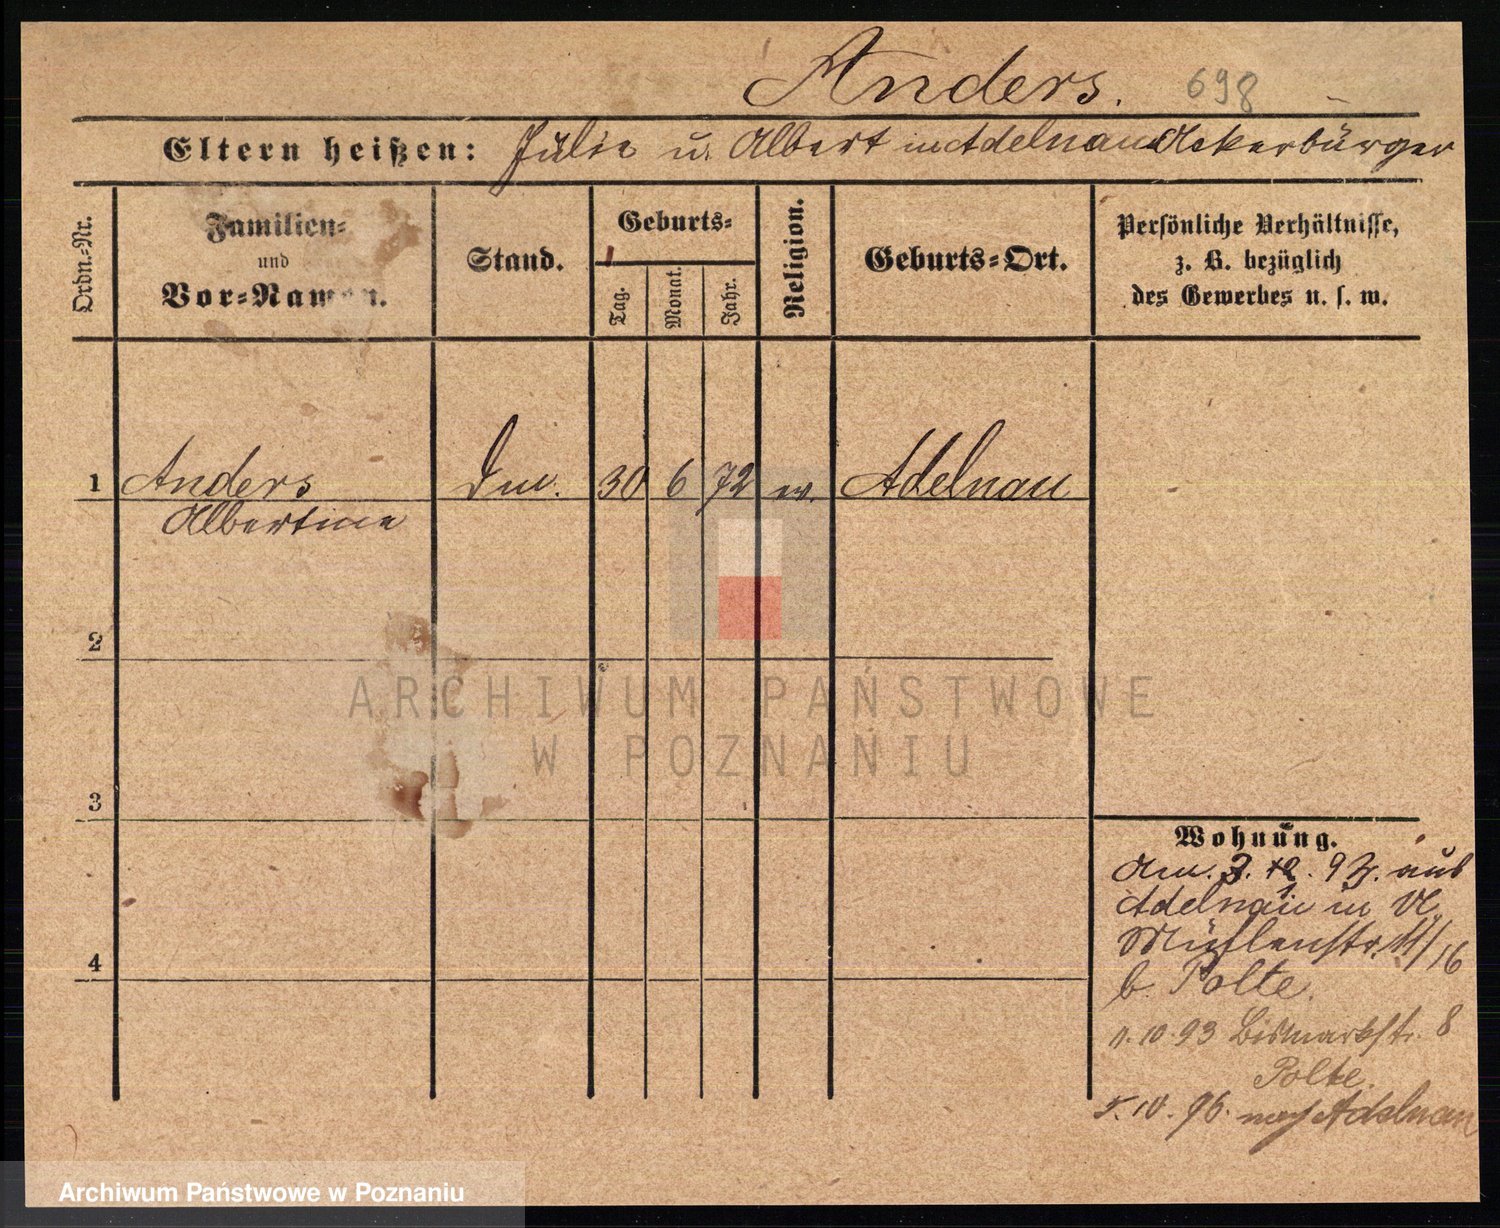 Anders. 698
Eltern heißen: Julie u. Albert in Adelnau Ackerbürger
Ordn.-Nr.
Familien-
und
Vor-Namen.
Stand.
Geburts-
Tag.
Monat.
Jahr.
Religion.
Geburts-Ort.
Persönliche Verhältnisse,
z. B. bezüglich
des Gewerbes u. s. w.
1 Anders 30 6 72 ev. Adelnau
Albertine
2
3
4
ARCHIWUM PAŃSTWOWE
W POZNANIU
Wohnung.
93. aus
Adelnau in
Mühlenstr. 16
b. Polte.
11.10.93 Bismarckstr. 8
Polte.
96. nach Adelnau
Archiwum Państwowe w Poznaniu